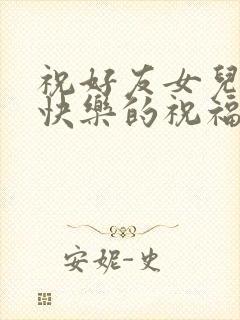 祝好友女兒
快樂的祝福
安妮-史